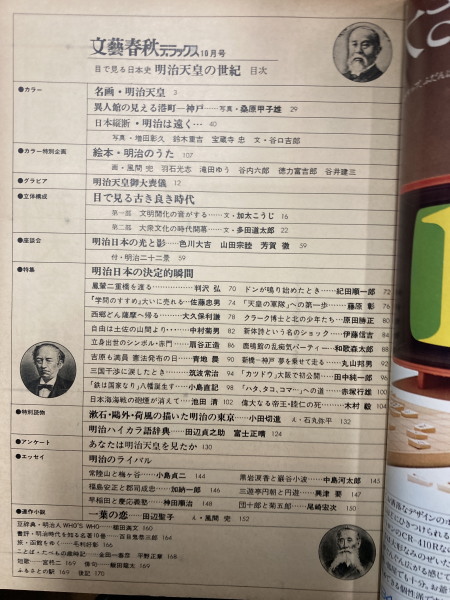 文藝春秋デラックス10月号
目で見る日本史 明治天皇の世紀 目次
●カラー 名画・明治天皇 3
異人館の見える港町―神戸 写真・桑原甲子雄 29
日本縦断・明治は遠く… 40
写真・増田彰久 鈴木重吉 宝蔵寺忠 文・谷口吉郎
●カラー特別企画 絵本・明治のうた 107
画・風間完 羽石光志 滝田ゆう 谷内六郎 徳力富吉郎 谷井建三
●グラビア 明治天皇御大喪儀 12
●立体構成 目で見る古き良き時代
第一部 文明開化の音がする……文・加太こうじ 16
第二部 大衆文化の時代開幕……文・多田道太郎 22
●座談会 明治日本の光と影……色川大吉 山田宗睦 芳賀徹 59
付・明治二十二景 59
●特集 明治日本の決定的瞬間
鳳輦二重橋を渡る……判沢弘 70 ドンが鳴り始めたとき……紀田順一郎 72
「学問のすすめ」大いに売れる…佐藤忠男 74 「天皇の軍隊」への第一歩……藤原彰 76
西郷どん薩摩へ帰る……大久保利謙 78 クラーク博士と北の少年たち…原田勝正 80
自由は土佐の山間より……中村菊男 82 新体詩という名のショック……伊藤信吉 84
立身出世のシンボル・赤門…扇谷正造 86 鹿鳴館の乱痴気パーティー…和歌森太郎 88
吉原も満員 憲法発布の日……青地晨 90 新橋―神戸 夢を乗せて走る……丸山邦男 92
三国干渉に涙したとき……筑波常治 94 「カツドウ」大阪で初公開……田中純一郎 96
「鉄は国家なり」八幡誕生す……小島直記 98 「ハタ、タコ、コマ…」への道……赤塚行雄 100
日本海海戦の砲煙が消えて…池田清 102 偉大なる帝王・睦仁の死……木村毅 104
●特別読物 漱石・鷗外・荷風の描いた明治の東京……小田切進 え・石丸弥平 132
明治ハイカラ語辞典……田辺貞之助 富士正晴 124
●アンケート あなたは明治天皇を見たか 130
●エッセイ 明治のライバル
常陸山と梅ヶ谷……小島貞二 144 黒岩涙香と巌谷小波……中島河太郎 145
福島安正と郡司成忠……加納一郎 146 三遊亭円朝と円遊……興津要 147
早稲田と慶応義塾……神田順治 148 団十郎と菊五郎……尾崎宏次 150
●連作小説 一葉の恋……田辺聖子 え・風間完 152
豆辞典・明治人WHO'S WHO……槌田満文 160
ことば・たべもの歳時記……金田一春彦 平野正章 168
ふるさとの駅 169 後記 170